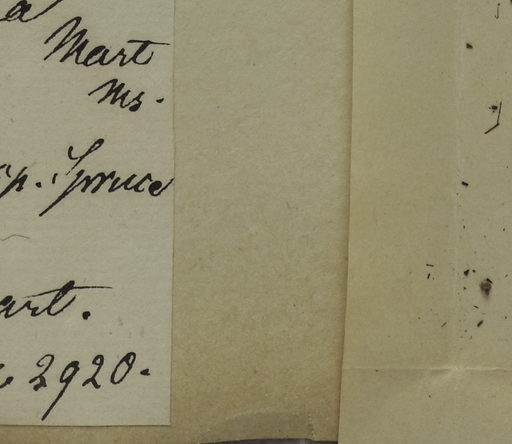 a
Mart
Ms.
p. Spruce
art.
2920.